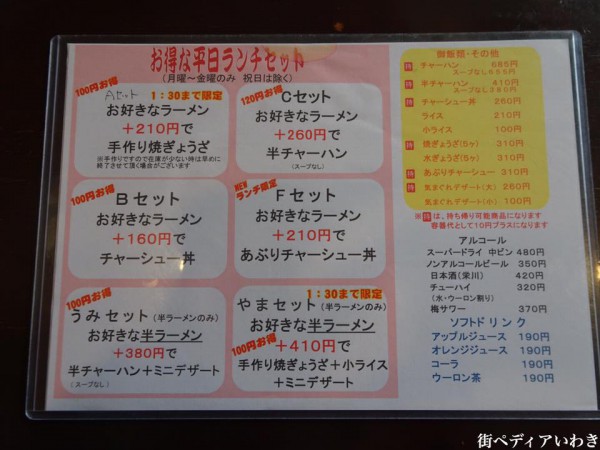 お得な平日ランチセット
(月曜～金曜のみ 祝日は除く)
100円お得
Aセット 1:30まで限定
お好きなラーメン
+210円で
手作り焼ぎょうざ
※手作りですので在庫が少ない時は早めに
終了させて頂く場合がございます
120円お得
Cセット
お好きなラーメン
+260円で
半チャーハン
(スープなし)
100円お得
Bセット
お好きなラーメン
+160円で
チャーシュー丼
NEW
ランチ限定
Fセット
お好きなラーメン
+210円で
あぶりチャーシュー丼
100円お得
うみセット(半ラーメンのみ)
お好きな半ラーメン
+380円で
半チャーハン+ミニデザート
(スープなし)
1:30まで限定
やませット(半ラーメンのみ)
お好きな半ラーメン
100円お得
+410円で
手作り焼ぎょうざ+小ライス
+ミニデザート
御飯類・その他
持 チャーハン 685円
スープなし655円
持 半チャーハン 410円
スープなし380円
持 チャーシュー丼 260円
ライス 210円
小ライス 100円
持 焼ぎょうざ(5ヶ) 310円
持 水ぎょうざ(5ヶ) 310円
持 あぶりチャーシュー 310円
持 気まぐれデザート(大) 260円
持 気まぐれデザート(小) 100円
※持は、持ち帰り可能商品になります
容器代として10円プラスになります
アルコール
スーパードライ 中ビン 480円
ノンアルコールビール 350円
日本酒(栄川) 420円
チューハイ 320円
(水・ウーロン割り)
梅サワー 370円
ソフトドリンク
アップルジュース 190円
オレンジジュース 190円
コーラ 190円
ウーロン茶 190円
街ペディアいわき